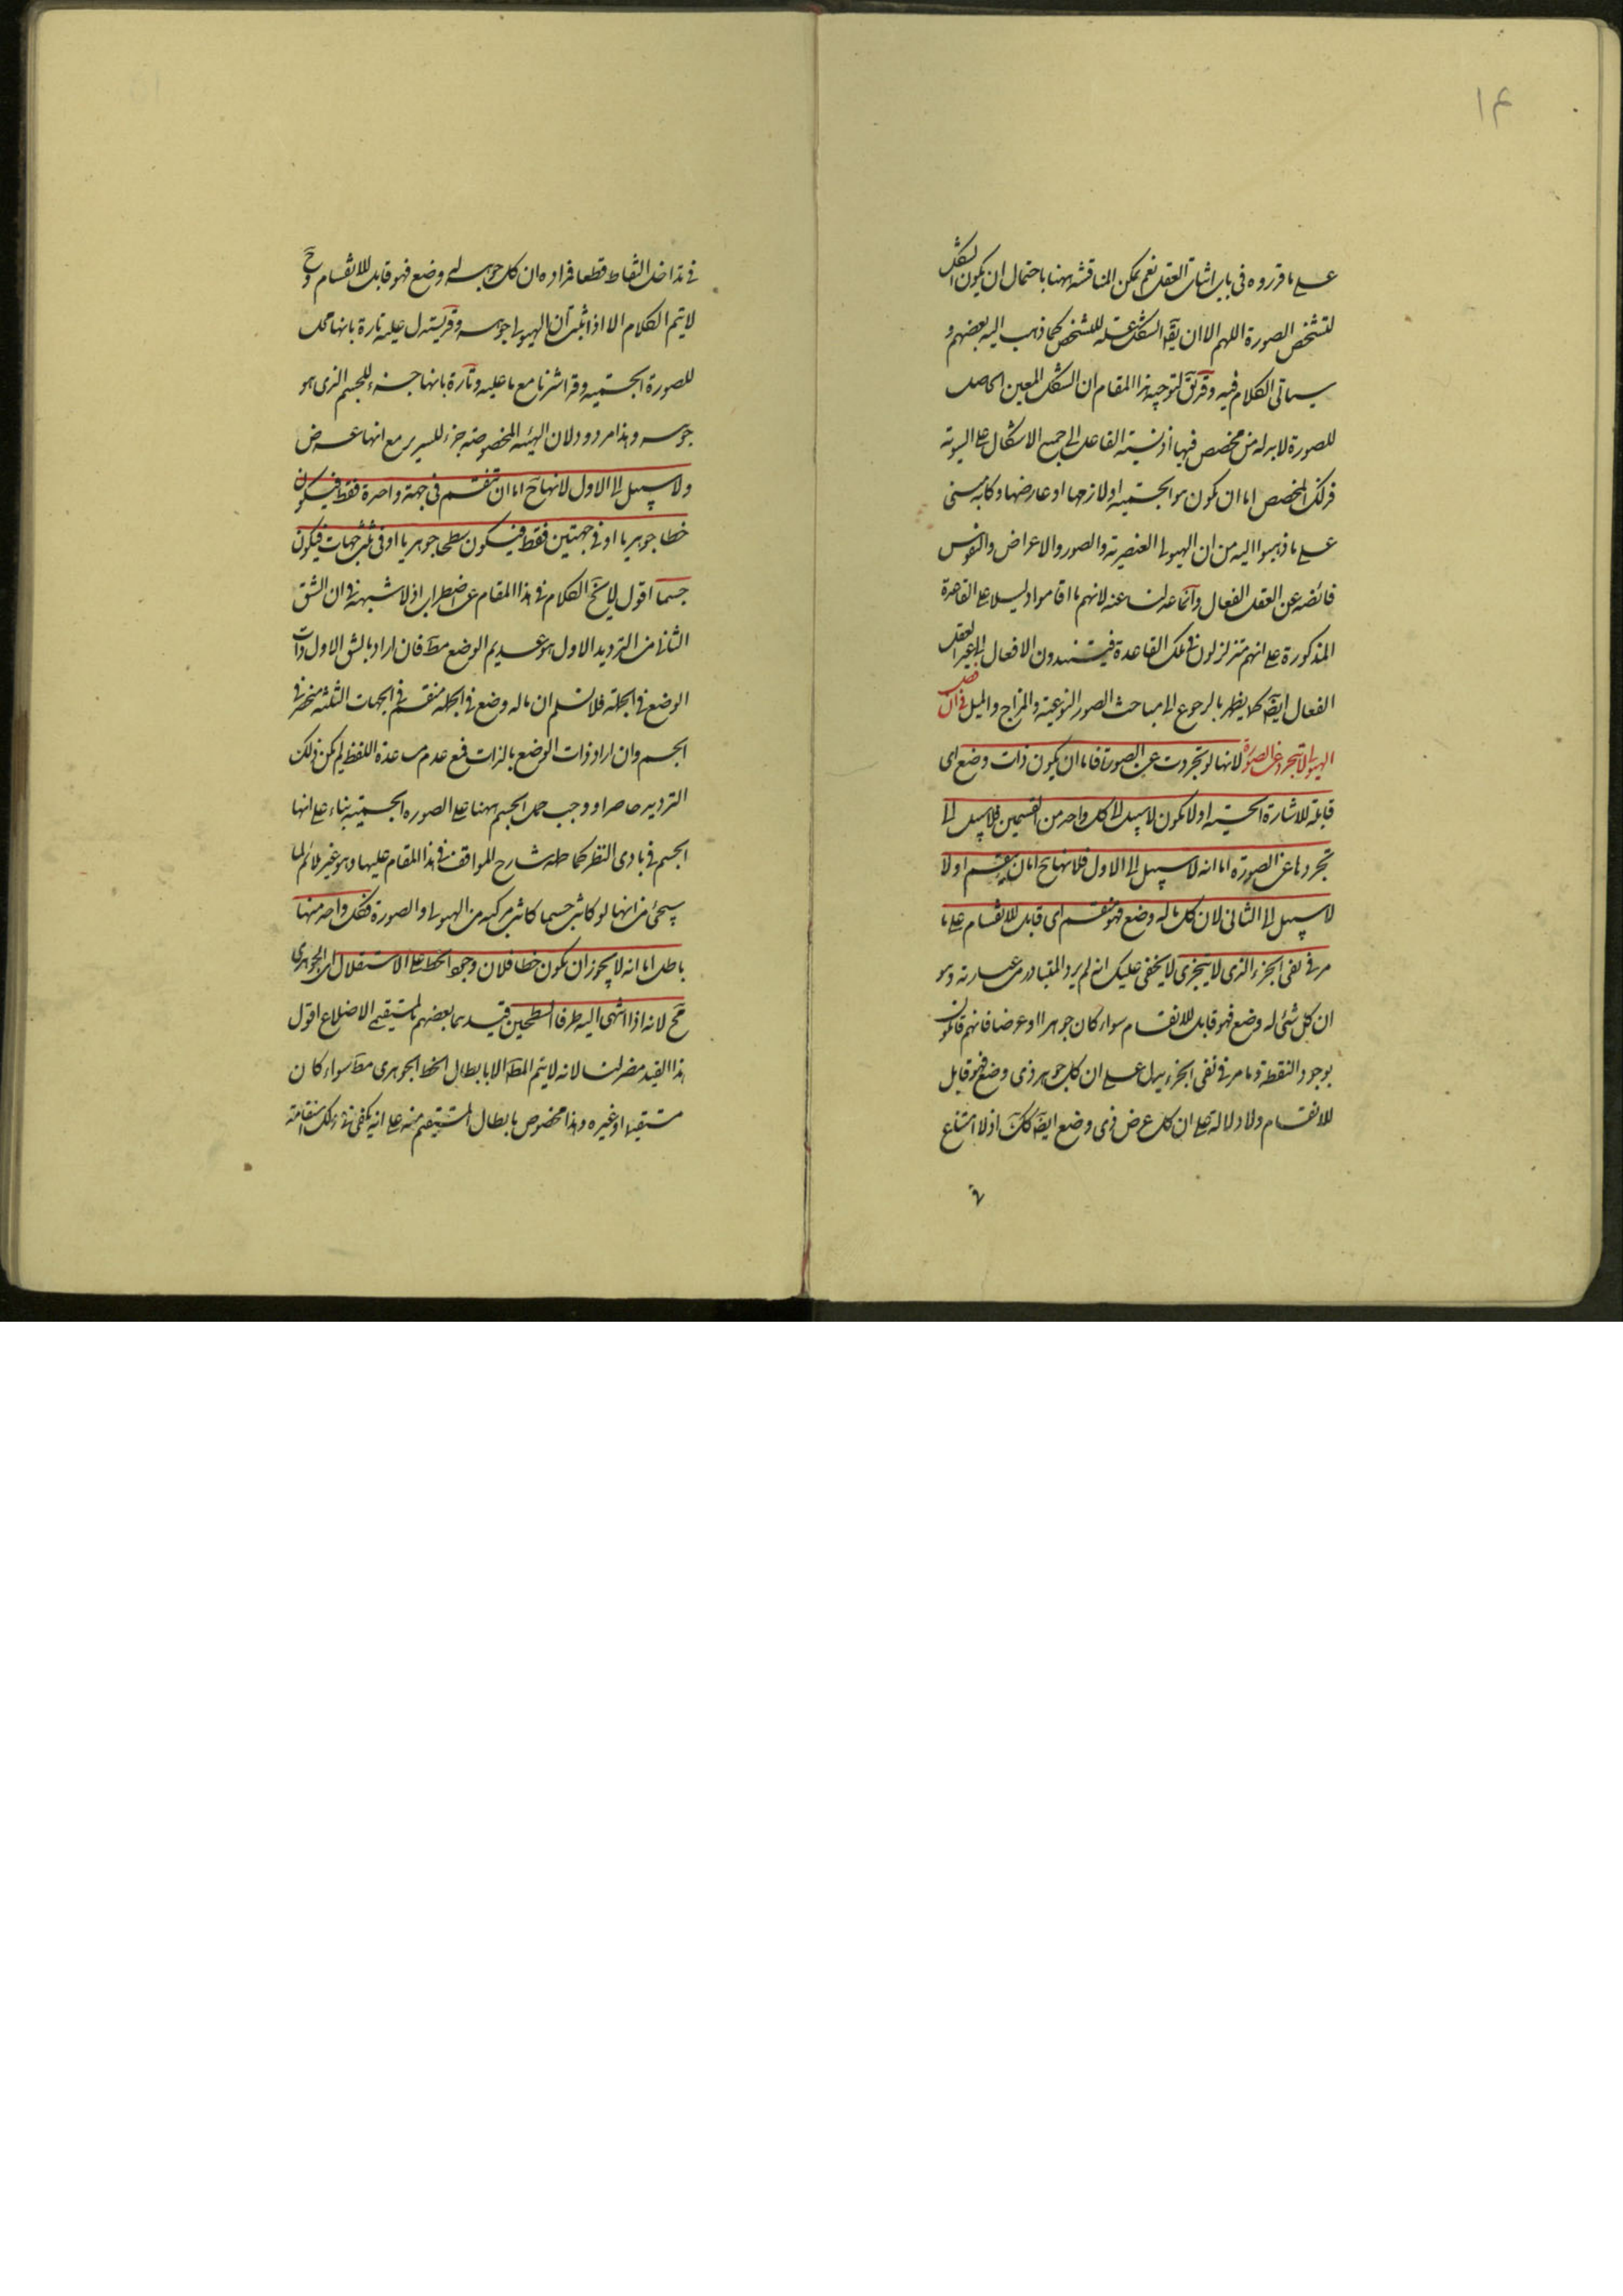 ١٤
على ما قرروه فى باب اثبات العقل نعم يمكن المناقشة ههنا باحتمال ان يكون الشكل
لتشخص الصورة اللهم الا ان يقۤ الشكل علة للتشخص كما ذهب اليه بعضهم و
سياتى الكلام فيه وقد يقۤ لتوجيه هذا المقام ان الشكل المعين الحاصل
للصورة لا بد له من مخصص فيها اذ نسبة الفاعل الى جميع الاشكال على السوية
فذلك المخصص اما ان يكون هو الجسمية او لازمها او عارضها وكانه مبنى
على ما ذهبوا اليه من ان الهيولى العنصرية والصور والاعراض والنفوس
فائضة عن العقل الفعال وانما عدلنا عنه لانهم ما اقاموا دليلا على القاعدة
المذكورة على انهم متزلزلون فى تلك القاعدة فيسندون الافعال الى غير العقل
الفعال ايضۤ كما يظهر بالرجوع الى مباحث الصور النوعية والمزاج والميل فصل فى ان
الهيولى لا تتجرد عن الصورة لانها لو تجردت عن الصورة فاما ان يكون ذات وضع اى
قابلة للاشارة الحسية او لا تكون لا سبيل الى كل واحد من القسمين فلا سبيل الى
تجردها عن الصورة اما انه لا سبيل الى الاول فلانها حۤ اما ان ينقسم او لا
لا سبيل الى الثانى لان كل ما له وضع فهو منقسم اى قابل للانقسام على ما
مر فى نفى الجزء الذى لا يتجزى لا يخفى عليك انه لم يرد المتبادر من عبارته وهو
ان كل شئ له وضع فهو قابل للانقسام سواء كان جوهرا او عرضا فانهم قائلون
بوجود النقطة وما مر فى نفى الجزء يدل على ان كل جوهر ذى وضع فهو قابل
للانقسام ولا دلالة على ان كل عرض ذى وضع ايضۤ كۤك اذ لا امتناع
فى
فى تداخل النقاط قطعا فمراده ان كل جوهر له وضع فهو قابل للانقسام وحۤ
لا يتم الكلام الا اذا ثبت ان الهيولى جوهر وقد يستدل عليه تارة بانها محل
للصورة الجسمية وقد اشرنا مع ما عليه وتارة بانها جزء للجسم الذى هو
جوهر وهذا مردود لان الهيئة المخصوصة جزء للسرير مع انها عرض
ولا سبيل الى الاول لانها حۤ اما ان تنقسم فى جهة واحدة فقط فيكون
خطا جوهريا او فى جهتين فقط فيكون سطحا جوهريا او فى ثلث جهات فيكون
جسما اقول لا يخۤ الكلام فى هذا المقام عن اضطراب اذ لا شبهة فى ان الشق
الثانى من الترديد الاول هو عديم الوضع مطۤ فان اراد بالشق الاول ذات
الوضع فى الجملة فلا نسلم ان ما له وضع فى الجملة منقسم فى الجهات الثلثة منحصر فى
الجسم وان اراد ذات الوضع بالذات فمع عدم مساعدة اللفظ لم يكن ذلك
الترديد حاصرا ووجب حمل الجسم ههنا على الصورة الجسمية بناء على انها
الجسم فى بادى النظر كما حمله شارح المواقف فى هذا المقام عليها وهو غير ملائم لما
سيجئ من انها لو كانت جسما كانت مركبة من الهيولى والصورة فكل واحد منها
باطل اما انه لا يجوز ان يكون خطا فلان وجود الخط على الاستقلال اى الجوهرى
مۤح لانه اذا انتهى اليه طرفا السطحين قيدهما بعضهم بمستقيمى الاضلاع اقول
هذا القيد مضر لنا لانه لا يتم المطۤ الا بابطال الخط الجوهرى مطۤ سواء كان
مستقيما او غيره وهذا مخصوص بابطال المستقيم منه على انه يكفى فى ذلك استقامة